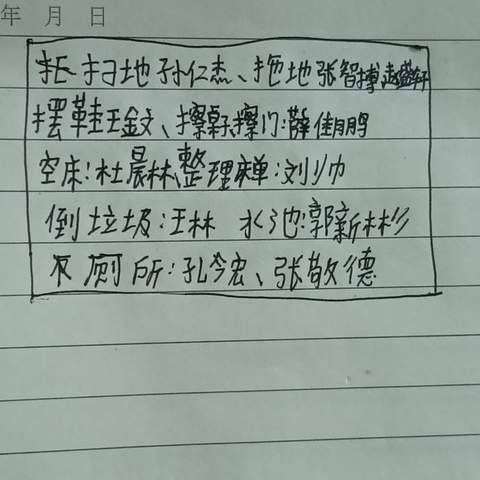 年 月 日
扫地孙仁杰、拖地张智博赵盛轩
摆鞋王鋡文、擦桌子擦门:薛佳鹏
空床:杜晨林、整理床单:刘小帅
倒垃圾:王林 水池:郭新彬
厕所:孔令宏、张敬德